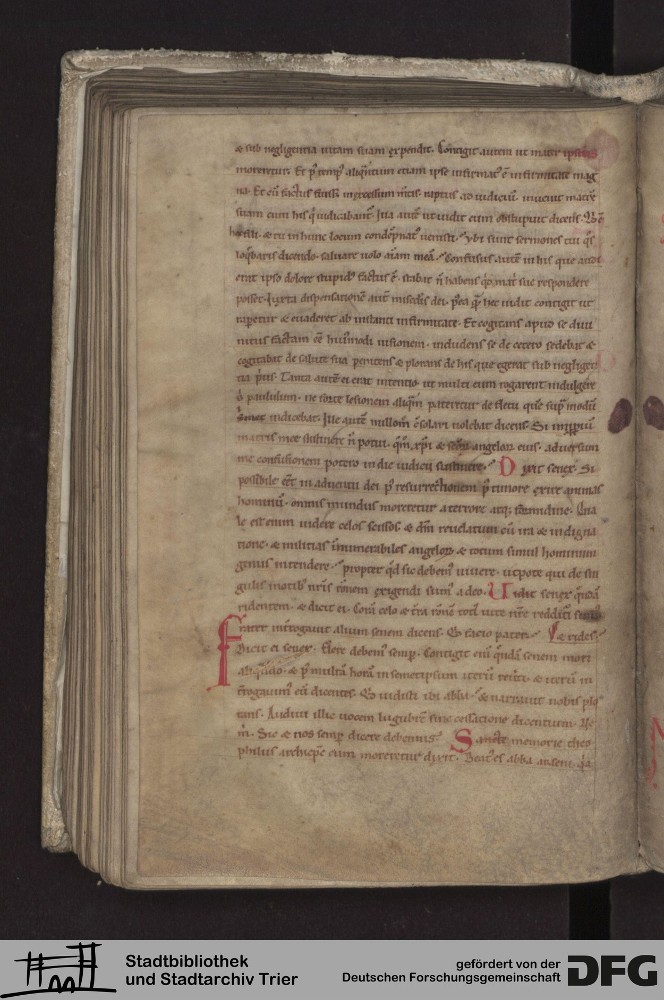 & sub negligentia uitam suam expendit. Contigit autem ut mater ipsius
moreretur. Et p̄ temp᷒ aliq̄ntum etiam ipse infirmat᷒ ē infirmitate mag
na. Et cū factus fuiss& in excessum m̄tis. raptus ad iudiciū inuenit matrē
suam cum his q̄ iudicabant᷒. Illa aut̄ ut uidit eum obstupuit dicens.
fili. & tu in hunc locum condēpnat᷒ uenisti. Vbi sunt sermones tui q̄s
loq̄baris dicendo. saluare uolo aīam meā. Confusus autē in his que
erat ipso dolore stupid᷒ fact᷒ē. stabat n̄ habens q̄d mat̄ sue respondere
poss&. Iuxta dispensationē aut̄ misc̄dīs dei. p̄ea q̄ hec uidit contigit ut
raper&ur & euader& ab instanti infirmitate. Et cogitans apud se diui
nitus factam eē hui᷒modi uisionem. includens se de c&ero sedebat &
cogitabat de salute sua penitens & plorans de his que egerat sub negligen
tia p̄us. Tanta autē ei erat intentio. ut multi eum rogarent indulgere
paululum. ne forte lesionem aliq̄m pateretur de fletu que sup̄ modū
indicebat. Ille autē nullom̄ c̄solari uolebat dicens. Si
matris mee sustinere n̄ potui. q̄m xp̄i & angelor̄ eius. aduersum
me confusionem potero in die iudicii sustinere. Dixit senex. Si
possibile eēt in aduentu dei p᷒ resurrectionem p̄ timore exire animas
hominū. omnis mundus moreretur a terrore atq; formidine. Qua
le est enim uidere celos scissos. & dm̄ reuelatum cū ira & indigna
tione. & militias innumerabiles angelor̄ & totum simul hominum
genus intendere. propter q̄d sic debem᷒ uiuere. utpote qui de sin
gulis motib᷒ nr̄is rōnem exigendi sum᷒ a deo. Vidit senex q̄ndā
ridentem. & dicit ei. Corā celo & t̄ra rōnē toti᷒ uite nr̄e
Frater interrogauit alium senem dicens. Qd̄ facio pater. & rides.
Dicit ei senex. Flere debem᷒ semp̄. Contigit eni᷒ q̄ndā senem mori
aliq̄ndo. & p᷒ multā horā in sem&ipsum iterū reuti. & iterū in
t̄rogauim᷒ eū dicentes. Qd̄ uidisti ibi abba. & narrauit nobis plo
rans. Audiui illic uocem lugubrē sine cessatione dicentium. Ve
m̄. Sic & nos semp̄ dicere debemus. Sancte memorie theo
philus archiep̄c cum moreretur dixit. Beat᷒ es abba arseni. q̄a
Stadtbibliothek
und Stadtarchiv Trier
gefördert von der
Deutschen Forschungsgemeinschaft
DFG